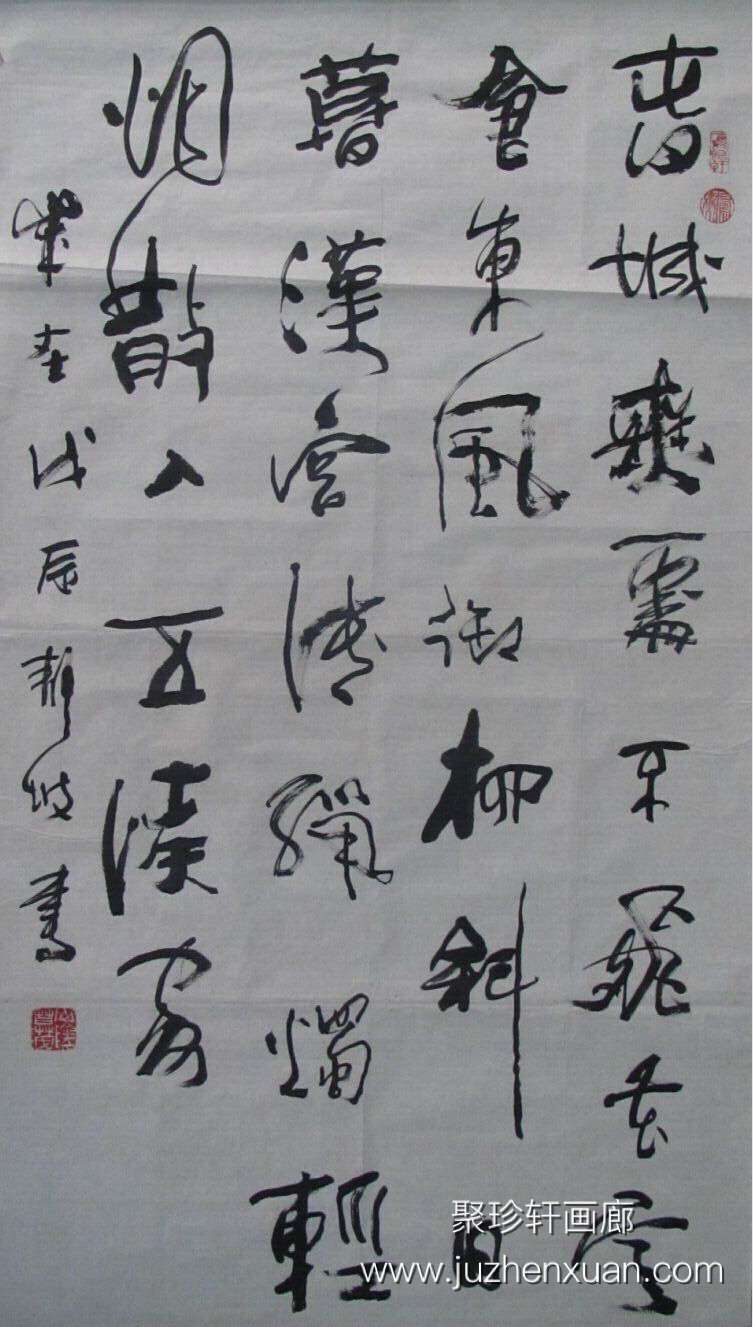 春城無處不飛花寒
食東風御柳斜日
暮漢宮傳蠟燭輕
烟散入五侯家
歲在戊辰靜坡書
聚珍轩画廊
www.juzhenxuan.com